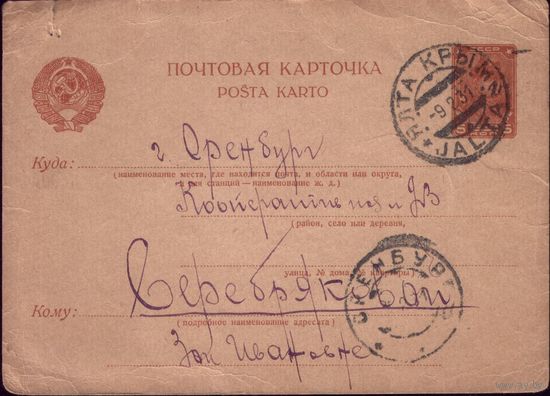 ПОЧТОВАЯ КАРТОЧКА
POŜTA KARTO
СССР
ЯЛТА КРЫМ
-9.2.31
JALTA
5 5
Куда: г. Оренбург
(наименование места, где находится почта, и области или округа,
а для станций—наименование ж. д.)
Кооперативная
(район, село или деревня,
улица, № дома, № квартиры)
ОРЕНБУРГ
Кому: Серебряковой
(подробное наименование адресата)
Зое Ивановне